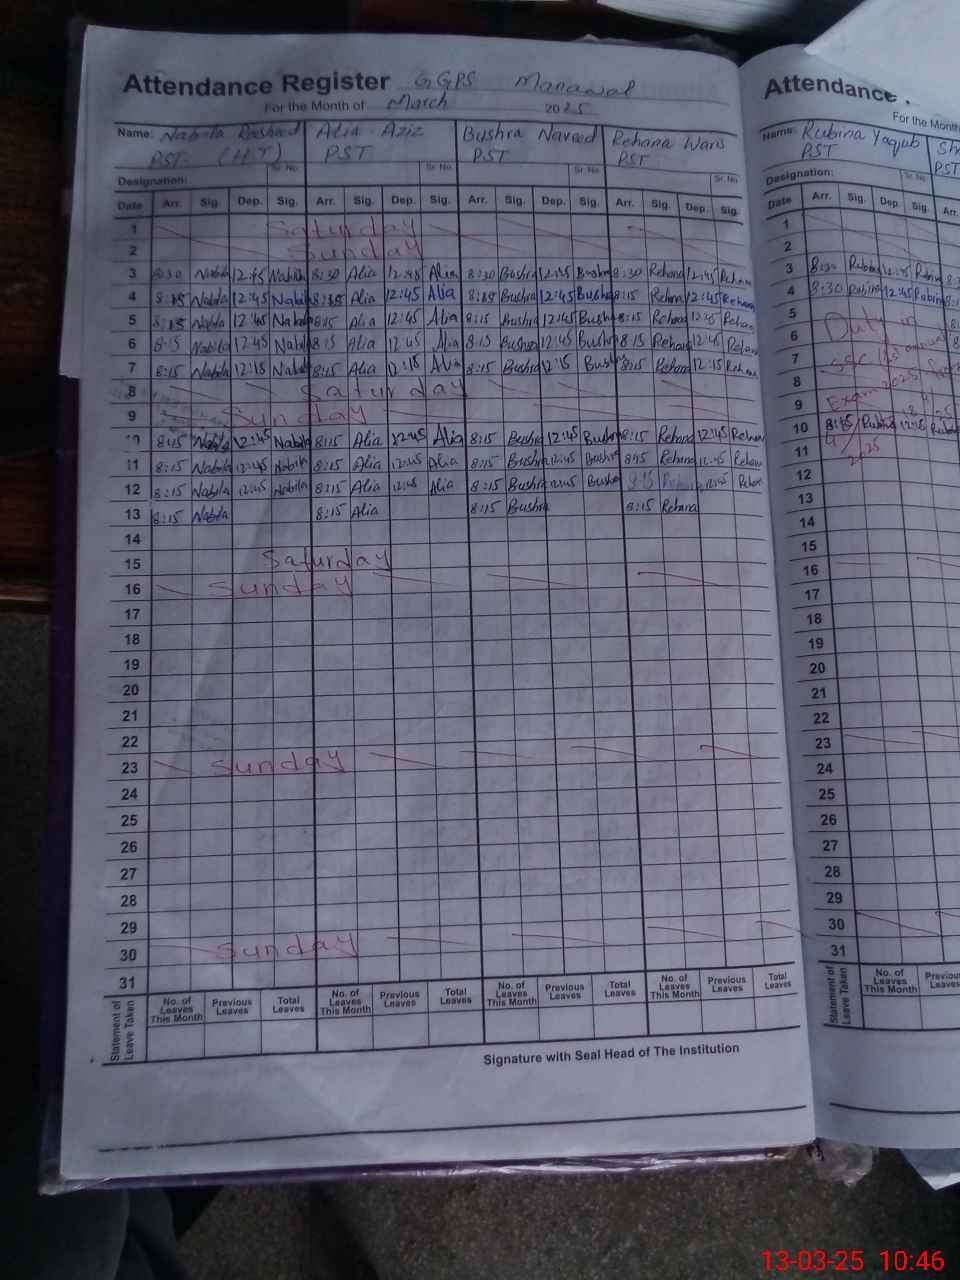 Attendance Register GGPS Manawal
For the Month of March 2025
Name: Nabila Rashad Alia Aziz Bushra Naveed Rehana Waris
PST (HT) PST PST PST
Sr. No Sr. No Sr. No Sr. No
Designation:
Date Arr. Sig. Dep. Sig. Arr. Sig. Dep. Sig. Arr. Sig. Dep. Sig. Arr. Sig. Dep. Sig.
1 Saturday
2 Sunday
3 8:30 Nabila 12:45 Nabila 8:30 Alia 12:45 Alia 8:30 Bushra 12:45 Bushra 8:30 Rehana 12:45 Rehana
4 8:15 Nabila 12:45 Nabila 8:15 Alia 12:45 Alia 8:15 Bushra 12:45 Bushra 8:15 Rehana 12:45 Rehana
5 8:15 Nabila 12:45 Nabila 8:15 Alia 12:45 Alia 8:15 Bushra 12:45 Bushra 8:15 Rehana 12:45 Rehana
6 8:15 Nabila 12:45 Nabila 8:15 Alia 12:45 Alia 8:15 Bushra 12:45 Bushra 8:15 Rehana 12:45 Rehana
7 8:15 Nabila 12:15 Nabila 8:15 Alia 12:15 Alia 8:15 Bushra 12:15 Bushra 8:15 Rehana 12:15 Rehana
8 Saturday
9 Sunday
10 8:15 Nabila 12:45 Nabila 8:15 Alia 12:45 Alia 8:15 Bushra 12:45 Bushra 8:15 Rehana 12:45 Rehana
11 8:15 Nabila 12:45 Nabila 8:15 Alia 12:45 Alia 8:15 Bushra 12:45 Bushra 8:15 Rehana 12:45 Rehana
12 8:15 Nabila 12:45 Nabila 8:15 Alia 12:45 Alia 8:15 Bushra 12:45 Bushra 8:15 Rehana 12:45 Rehana
13 8:15 Nabila 8:15 Alia 8:15 Bushra 8:15 Rehana
14
15 Saturday
16 Sunday
17
18
19
20
21
22
23 Sunday
24
25
26
27
28
29
30 Sunday
31
Statement of Leave Taken
No. of Leaves This Month Previous Leaves Total Leaves No. of Leaves This Month Previous Leaves Total Leaves No. of Leaves This Month Previous Leaves Total Leaves No. of Leaves This Month Previous Leaves Total Leaves
Signature with Seal Head of The Institution
Attendance
For the Month
Name: Rubina Yaqub
PST PST
Sr. No
Designation:
Date Arr. Sig. Dep. Sig. Arr.
1
2
3 8:30 Rubina 12:45 Rubina
4 8:30 Rubina 12:45 Rubina
5
6 Duty in
7 SSC 1st annual
8
9 Exam 2025
10 8:15 Rubina 12:45 Rubina
11
12 2025
13
14
15
16
17
18
19
20
21
22
23
24
25
26
27
28
29
30
31
Statement of Leave Taken
No. of Leaves This Month Previous Leaves
13-03-25 10:46